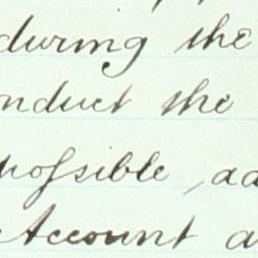 during the
nduct the
possible, ad
Account a